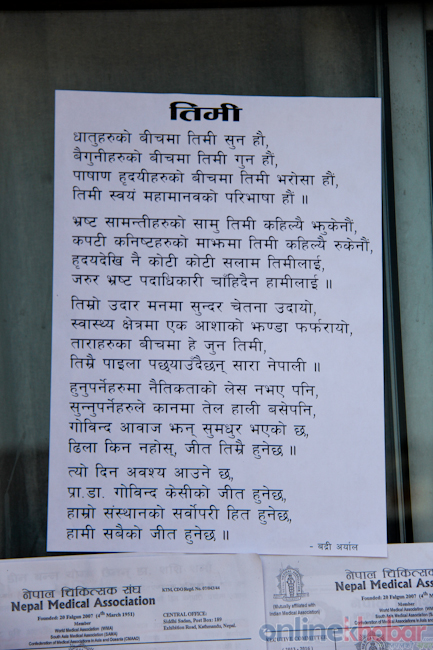 तिमी
धातुहरुको बीचमा तिमी सुन हौ,
बैगुनीहरुको बीचमा तिमी गुन हौं,
पाषाण हृदयीहरुको बीचमा तिमी भरोसा हौं,
तिमी स्वयं महामानवको परिभाषा हौं ॥
भ्रष्ट सामन्तीहरुको सामु तिमी कहिल्यै झुकेनौं,
कपटी कनिष्टहरुको माझमा तिमी कहिल्यै रुकेनौं,
हृदयदेखि नै कोटी कोटी सलाम तिमीलाई,
जरुर भ्रष्ट पदाधिकारी चाँहिदैन हामीलाई ॥
तिम्रो उदार मनमा सुन्दर चेतना उदायो,
स्वास्थ्य क्षेत्रमा एक आशाको झण्डा फर्फरायो,
ताराहरुका बीचमा हे जुन तिमी,
तिम्रै पाइला पछ्याउँदैछन् सारा नेपाली ॥
हुनुपर्नेहरुमा नैतिकताको लेस नभए पनि,
सुन्नुपर्नेहरुले कानमा तेल हाली बसेपनि,
गोविन्द आवाज झन् सुमधुर भएको छ,
ढिला किन नहोस्, जीत तिम्रै हुनेछ ॥
त्यो दिन अवश्य आउने छ,
प्रा.डा. गोविन्द केसीको जीत हुनेछ,
हाम्रो संस्थानको सर्वोपरी हित हुनेछ,
हामी सबैको जीत हुनेछ ॥
- बद्री अर्याल
नेपाल चिकित्सक संघ
Nepal Medical Association
Founded: 20 Falgun 2007 (4th March 1951)
Member
World Medical Association (WMA)
South Asia Medical Association (SAMA)
Confederation of Medical Associations in Asia and Oceania (CMAAO)
CENTRAL OFFICE:
Siddhi Sadan, Post Box: 189
Exhibition Road, Kathmandu, Nepal
(Mutually affiliated with
Indian Medical Association)
नेपाल चिकित्सक
Nepal Medical Association
Founded: 20 Falgun 2007
Member
World Medical Association
onlinekhabar